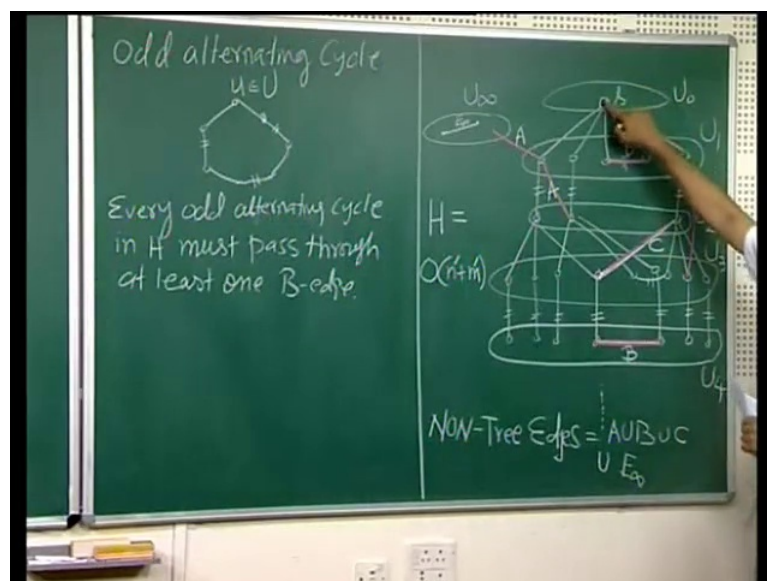 Odd alternating Cycle
u∈U
Every odd alternating cycle
in H must pass through
at least one B-edge.
U∞
s
U₀
A
U₁
A
H =
C
U₃
O(n'+m')
B
U₄
NON-Tree Edges = A∪B∪C
∪ E∞